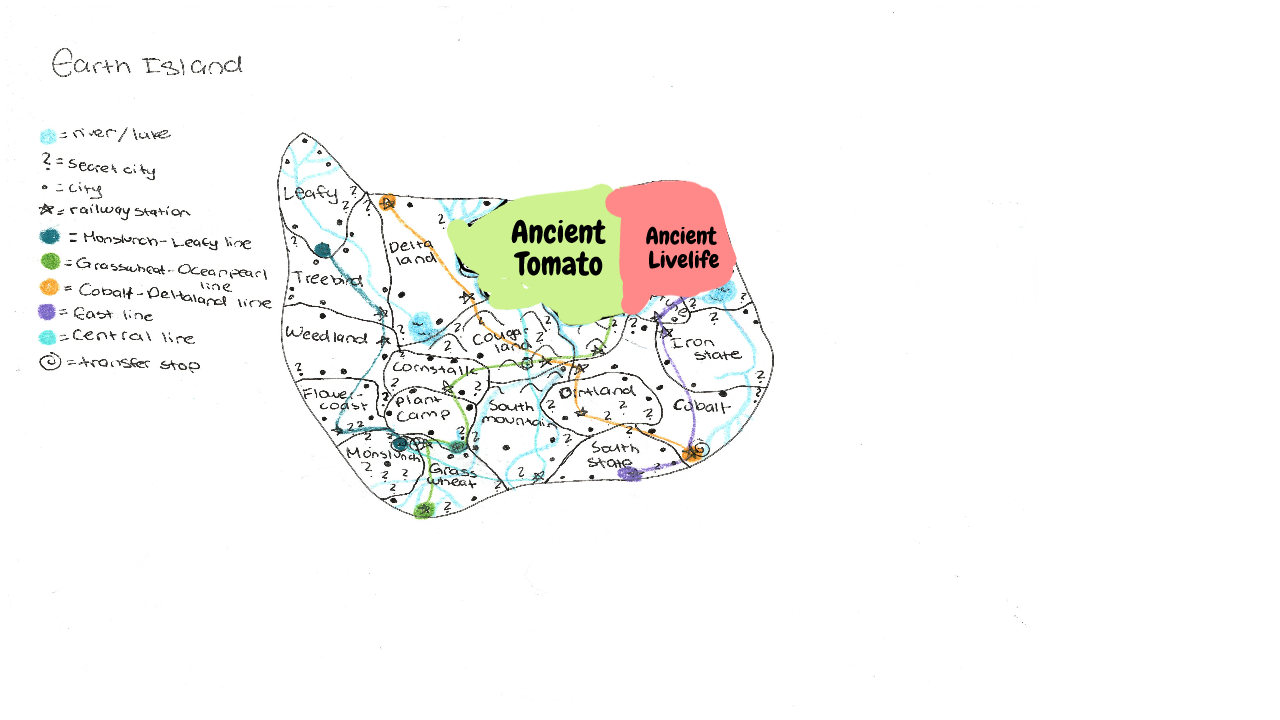 Earth Island
= river/lake
? = secret city
• = city
☆ = railway station
= Monslunch-Leafy line
= Grasswheat-Oceanpearl
line
= Cobalt-Deltaland line
= East line
= Central line
= transfer stop
Leafy
Treebird
Delta
land
Ancient
Tomato
Ancient
Livelife
Weedland
Couga-
land
Iron
state
Cornstalk
Flower-
coast
Plant
Camp
South
mountain
Dirtland
Cobalt
Monslunch
Grass
wheat
South
state